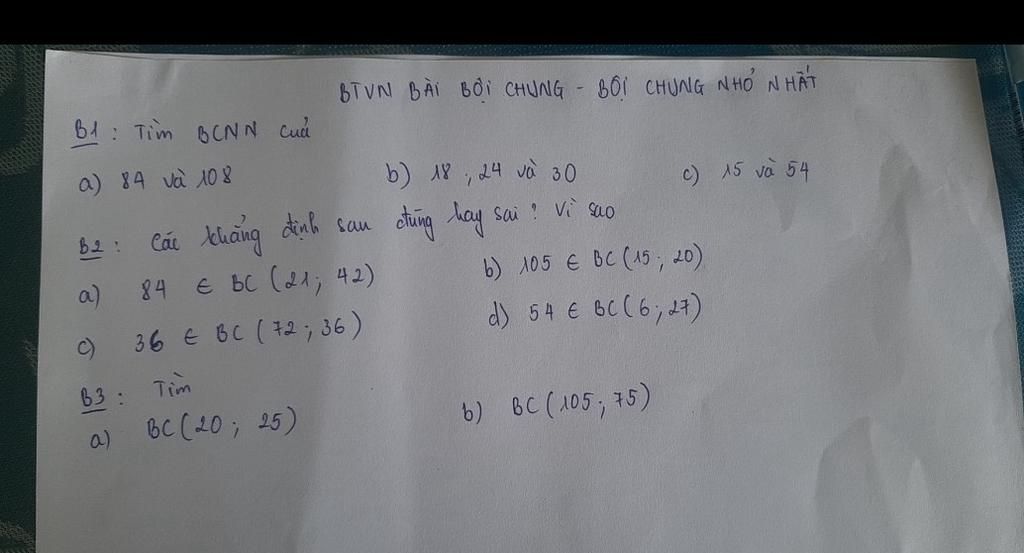 BTVN BÀI BỘI CHUNG - BỘI CHUNG NHỎ NHẤT
B1 : Tìm BCNN của
a) 84 và 108 b) 18 ; 24 và 30 c) 15 và 54
B2 : Các khẳng định sau đúng hay sai? Vì sao
a) 84 ∈ BC (21; 42) b) 105 ∈ BC(15; 20)
c) 36 ∈ BC (72; 36) d) 54 ∈ BC(6; 27)
B3 : Tìm
a) BC(20; 25) b) BC(105; 75)